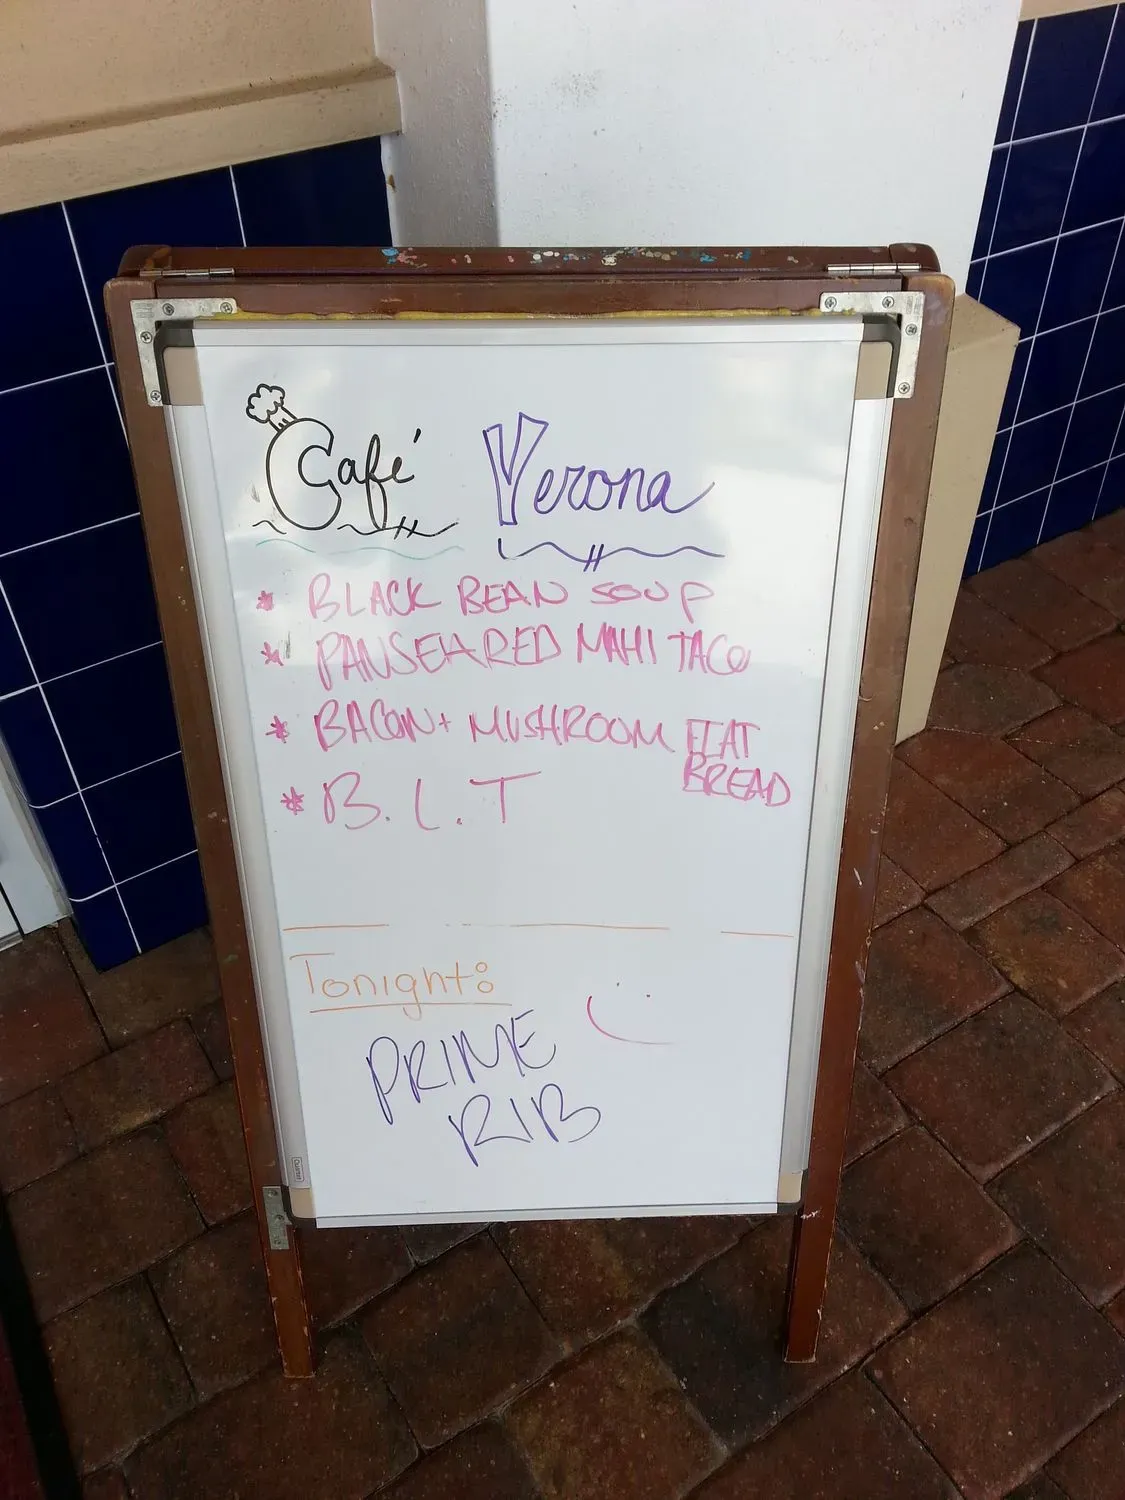 Café Verona
* BLACK BEAN SOUP
* PANSEARED MAHI TACO
* BACON + MUSHROOM FLAT
BREAD
* B.L.T
Tonight:
PRIME
RIB